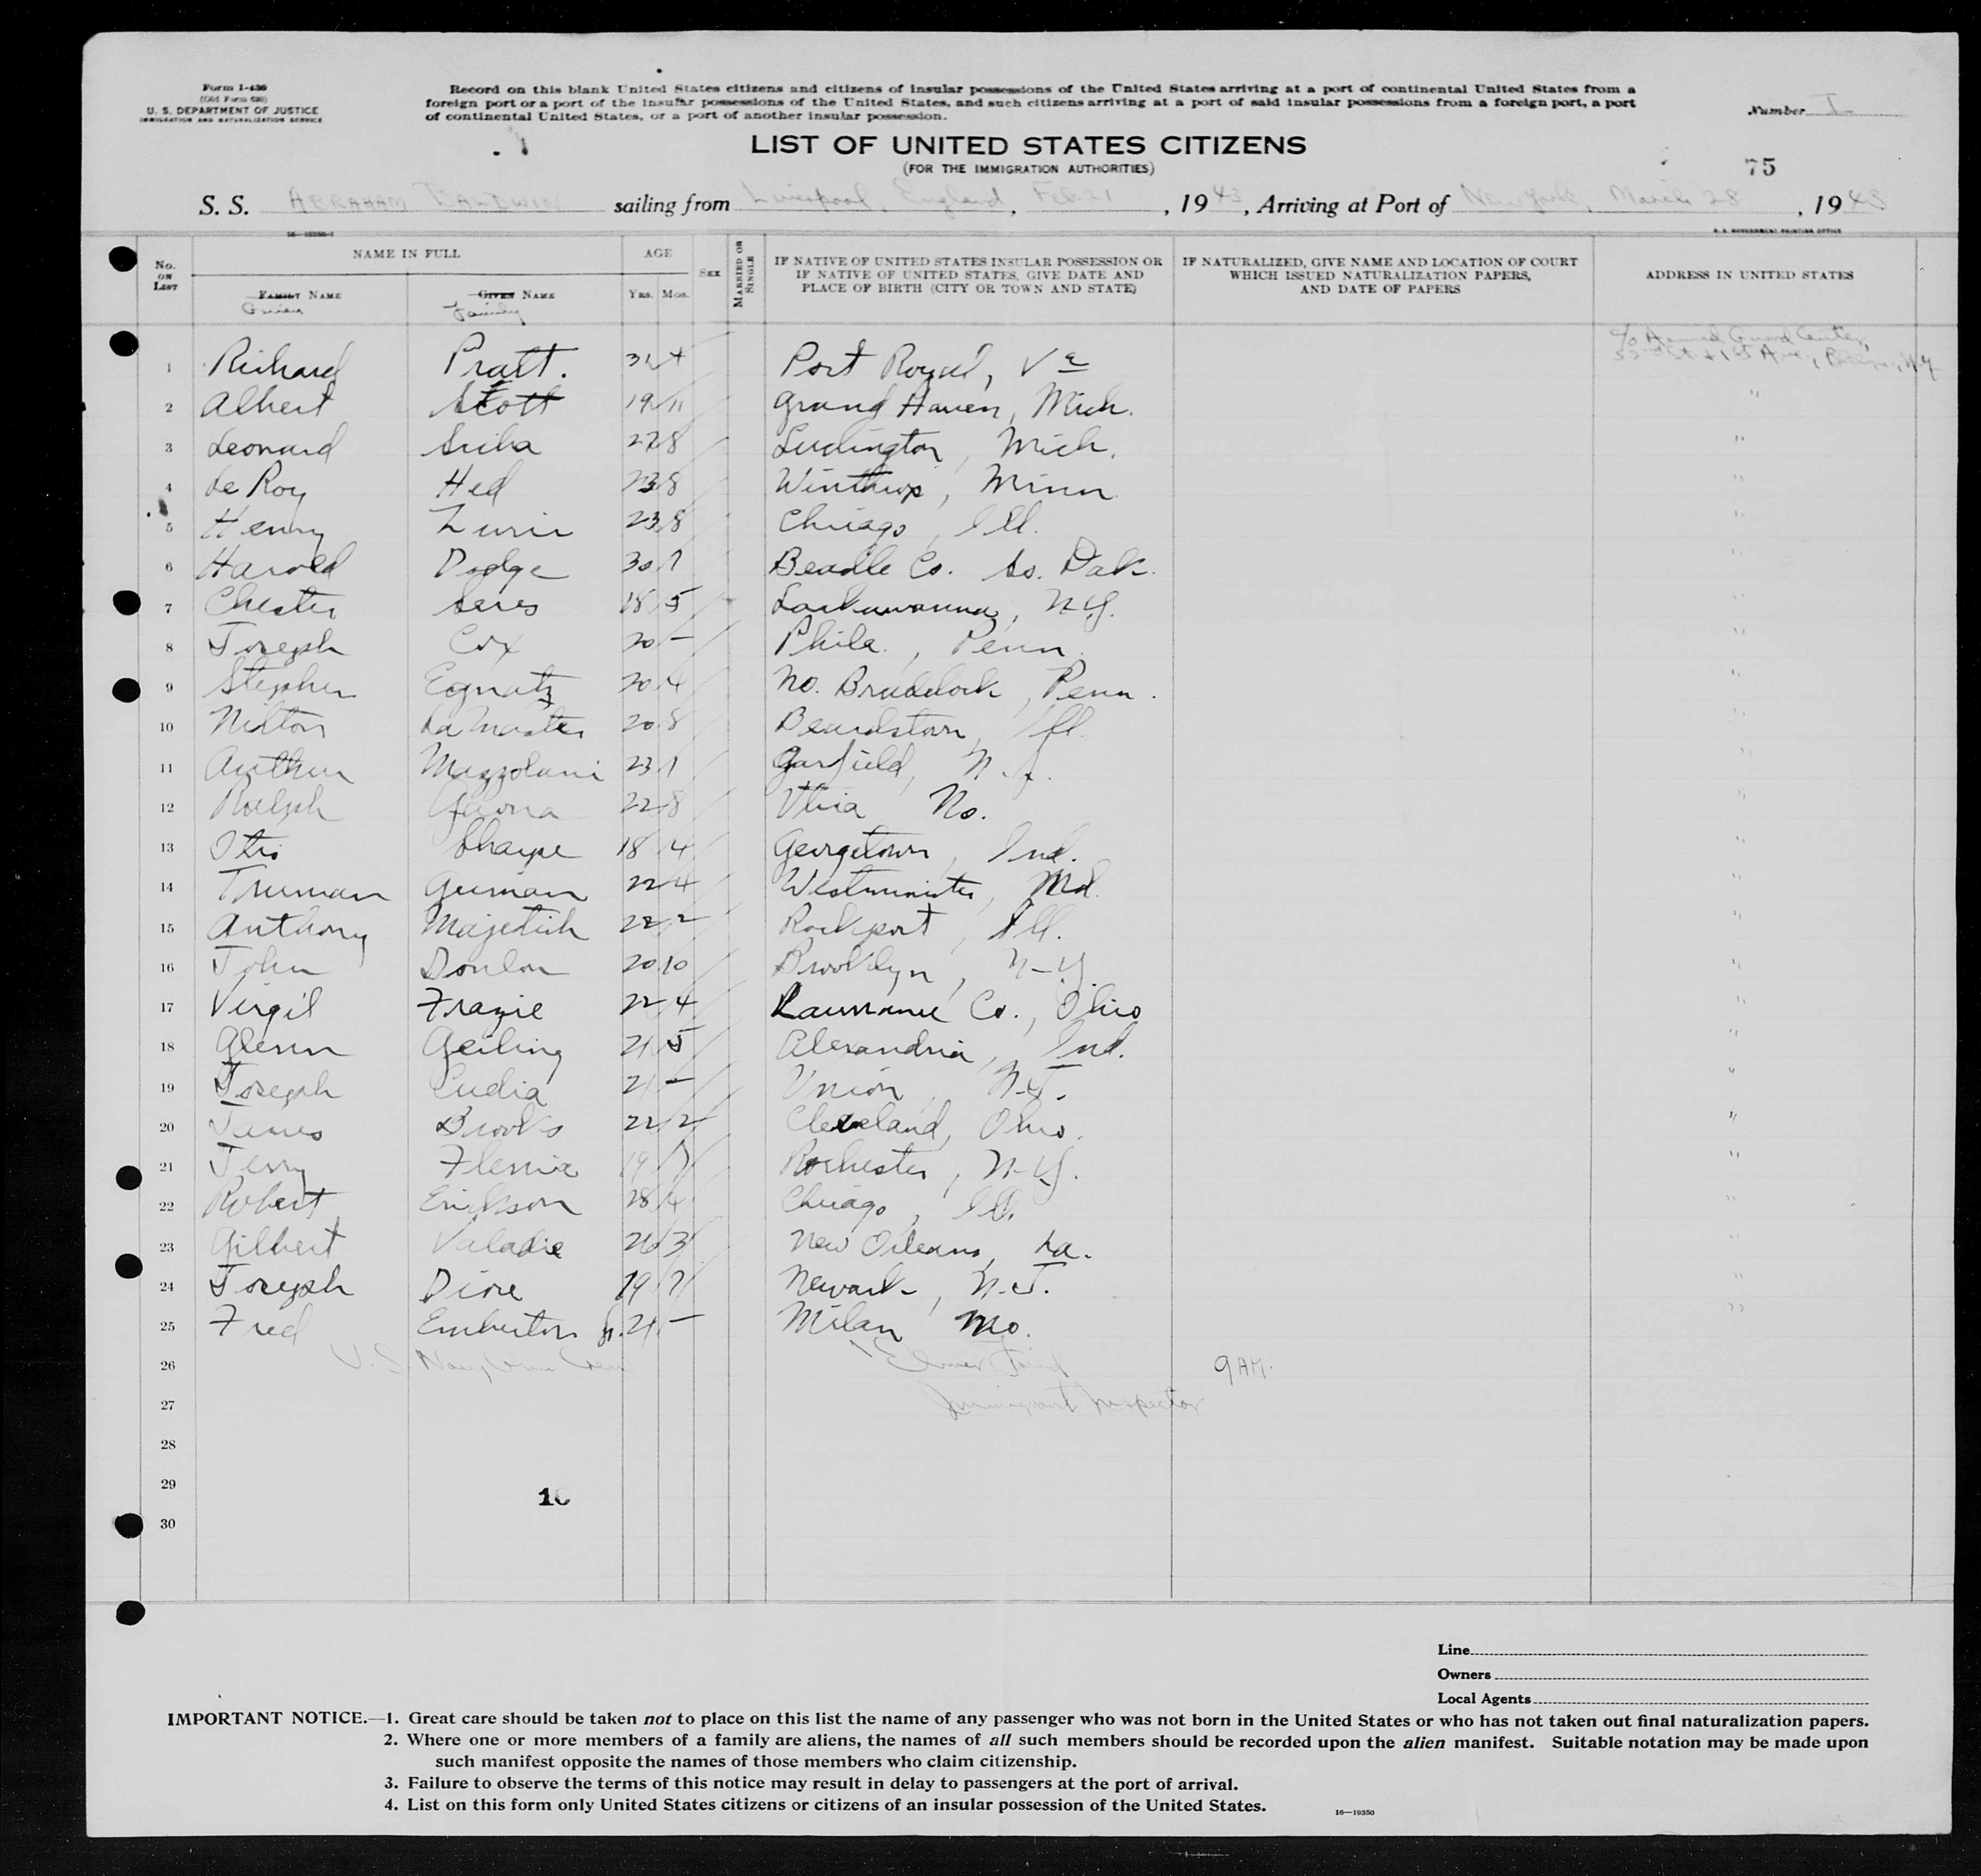 Form I-430
(Old Form 630)
U. S. DEPARTMENT OF JUSTICE
IMMIGRATION AND NATURALIZATION SERVICE
Record on this blank United States citizens and citizens of insular possessions of the United States arriving at a port of continental United States from a
foreign port or a port of the insular possessions of the United States, and such citizens arriving at a port of said insular possessions from a foreign port, a port
of continental United States, or a port of another insular possession.
Number I
LIST OF UNITED STATES CITIZENS
(FOR THE IMMIGRATION AUTHORITIES)
75
S. S. ABRAHAM BALDWIN sailing from Liverpool, England, Feb. 21, 1943, Arriving at Port of New York, March 28, 1943
U. S. GOVERNMENT PRINTING OFFICE
No. ON LIST
NAME IN FULL
FAMILY NAME
GIVEN NAME
Family
AGE
YRS. MOS.
SEX
MARRIED OR SINGLE
IF NATIVE OF UNITED STATES INSULAR POSSESSION OR
IF NATIVE OF UNITED STATES, GIVE DATE AND
PLACE OF BIRTH (CITY OR TOWN AND STATE)
IF NATURALIZED, GIVE NAME AND LOCATION OF COURT
WHICH ISSUED NATURALIZATION PAPERS,
AND DATE OF PAPERS
ADDRESS IN UNITED STATES
c/o Armed Guard Center,
1 Richard Pratt. 31 4 Port Royal, Va 52nd St. & 1st Ave., N.Y.
2 Albert Stott 19 11 Grand Haven, Mich. "
3 Leonard 27 8 Ludington, Mich. "
4 Le Roy Hed 23 8 Winthrop, Minn. "
5 Henry 23 8 Chicago, Ill. "
6 Harold Dodge 30 7 Beadle Co. So. Dak. "
7 Chester Seres 18 5 Lackawanna, N.Y. "
8 Joseph Cox 20 — Phila., Penn. "
9 Stephen Egnatz 20 4 No. Braddock, Penn. "
10 Milton La Master 20 8 Beardstown, Ill. "
11 Arthur Mazzolani 23 1 Garfield, N.J. "
12 Ralph 22 8 "
13 Otis Sharpe 18 4 Georgetown, Ind. "
14 Truman 22 4 Westminster, Md. "
15 Anthony Majetich 22 2 Rockport, Ill. "
16 John Donlon 20 10 Brooklyn, N-Y. "
17 Virgil Frazie 22 4 Co., Ohio "
18 Glenn Geiling 21 5 Alexandria, Ind. "
19 Joseph 21 — Union, N.J. "
20 James Brooks 22 2 Cleveland, Ohio. "
21 Jerry 19 7 Rochester, N-Y. "
22 Robert Erickson 28 4 Chicago, Ill. "
23 Gilbert Valadie 26 3 New Orleans, La. "
24 Joseph Dire 19 7 Newark, N.J. "
25 Fred Emberton Jr. 21 — Milan Mo. "
26 U.S. Navy Gun Crew Elmer 9 AM.
27 Immigrant Inspector
28
29
10
30
Line
Owners
Local Agents
IMPORTANT NOTICE.—1. Great care should be taken not to place on this list the name of any passenger who was not born in the United States or who has not taken out final naturalization papers.
2. Where one or more members of a family are aliens, the names of all such members should be recorded upon the alien manifest. Suitable notation may be made upon
such manifest opposite the names of those members who claim citizenship.
3. Failure to observe the terms of this notice may result in delay to passengers at the port of arrival.
4. List on this form only United States citizens or citizens of an insular possession of the United States.
16—19350